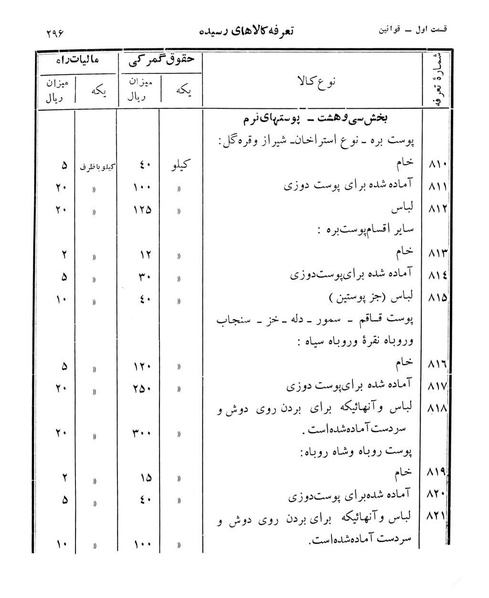 قسمت اول ــ قوانین تعرفه کالاهای رسیده ۲۹۶
شمارهٔ تعرفه نوع کالا حقوق گمرکی مالیات راه
یکه میزان ریال یکه میزان ریال
بخش سی و هشت ــ پوستهای نرم
پوست بره ــ نوع استراخان ــ شیراز و قره گل:
۸۱۰ خام کیلو ۴۰ کیلو باظرف ۵
۸۱۱ آماده شده برای پوست دوزی » ۱۰۰ » ۲۰
۸۱۲ لباس » ۱۲۵ » ۲۰
سایر اقسام پوست بره :
۸۱۳ خام » ۱۲ » ۲
۸۱۴ آماده شده برای پوست دوزی » ۳۰ » ۵
۸۱۵ لباس (جز پوستین) » ۴۰ » ۱۰
پوست قاقم ــ سمور ــ دله ــ خز ــ سنجاب
وروباه نقرهٔ وروباه سیاه :
۸۱۶ خام » ۱۲۰ » ۵
۸۱۷ آماده شده برای پوست دوزی » ۲۵۰ » ۲۰
۸۱۸ لباس و آنهائیکه برای بردن روی دوش و
سردست آماده شده است. » ۳۰۰ » ۲۰
پوست روباه وشاه روباه:
۸۱۹ خام » ۱۵ » ۲
۸۲۰ آماده شده برای پوست دوزی » ۴۰ » ۵
۸۲۱ لباس و آنهائیکه برای بردن روی دوش و
سردست آماده شده است. » ۱۰۰ » ۱۰